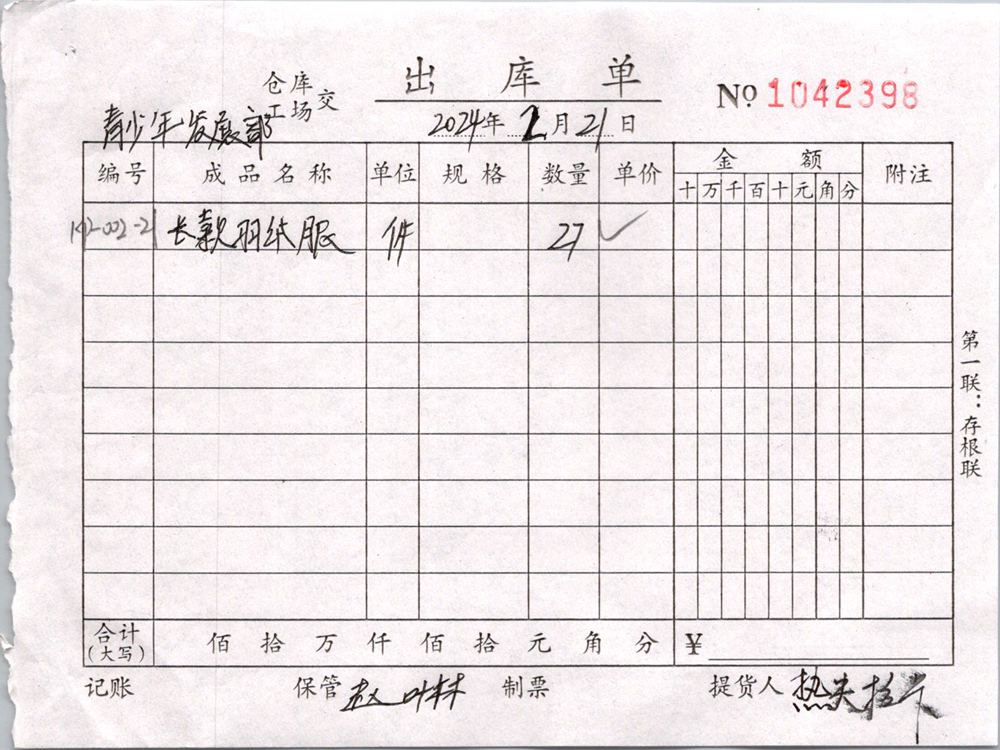 出库单
仓库
工场 交
№ 1042398
青少年发展部
2024年 2月21日
编号 成品名称 单位 规格 数量 单价 金额 附注
十万千百十元角分
192-002-21 长款羽绒服 件 27 ✓
第一联：存根联
合计（大写） 佰 拾 万 仟 佰 拾 元 角 分 ¥
记账 保管 赵 制票 提货人 热夫